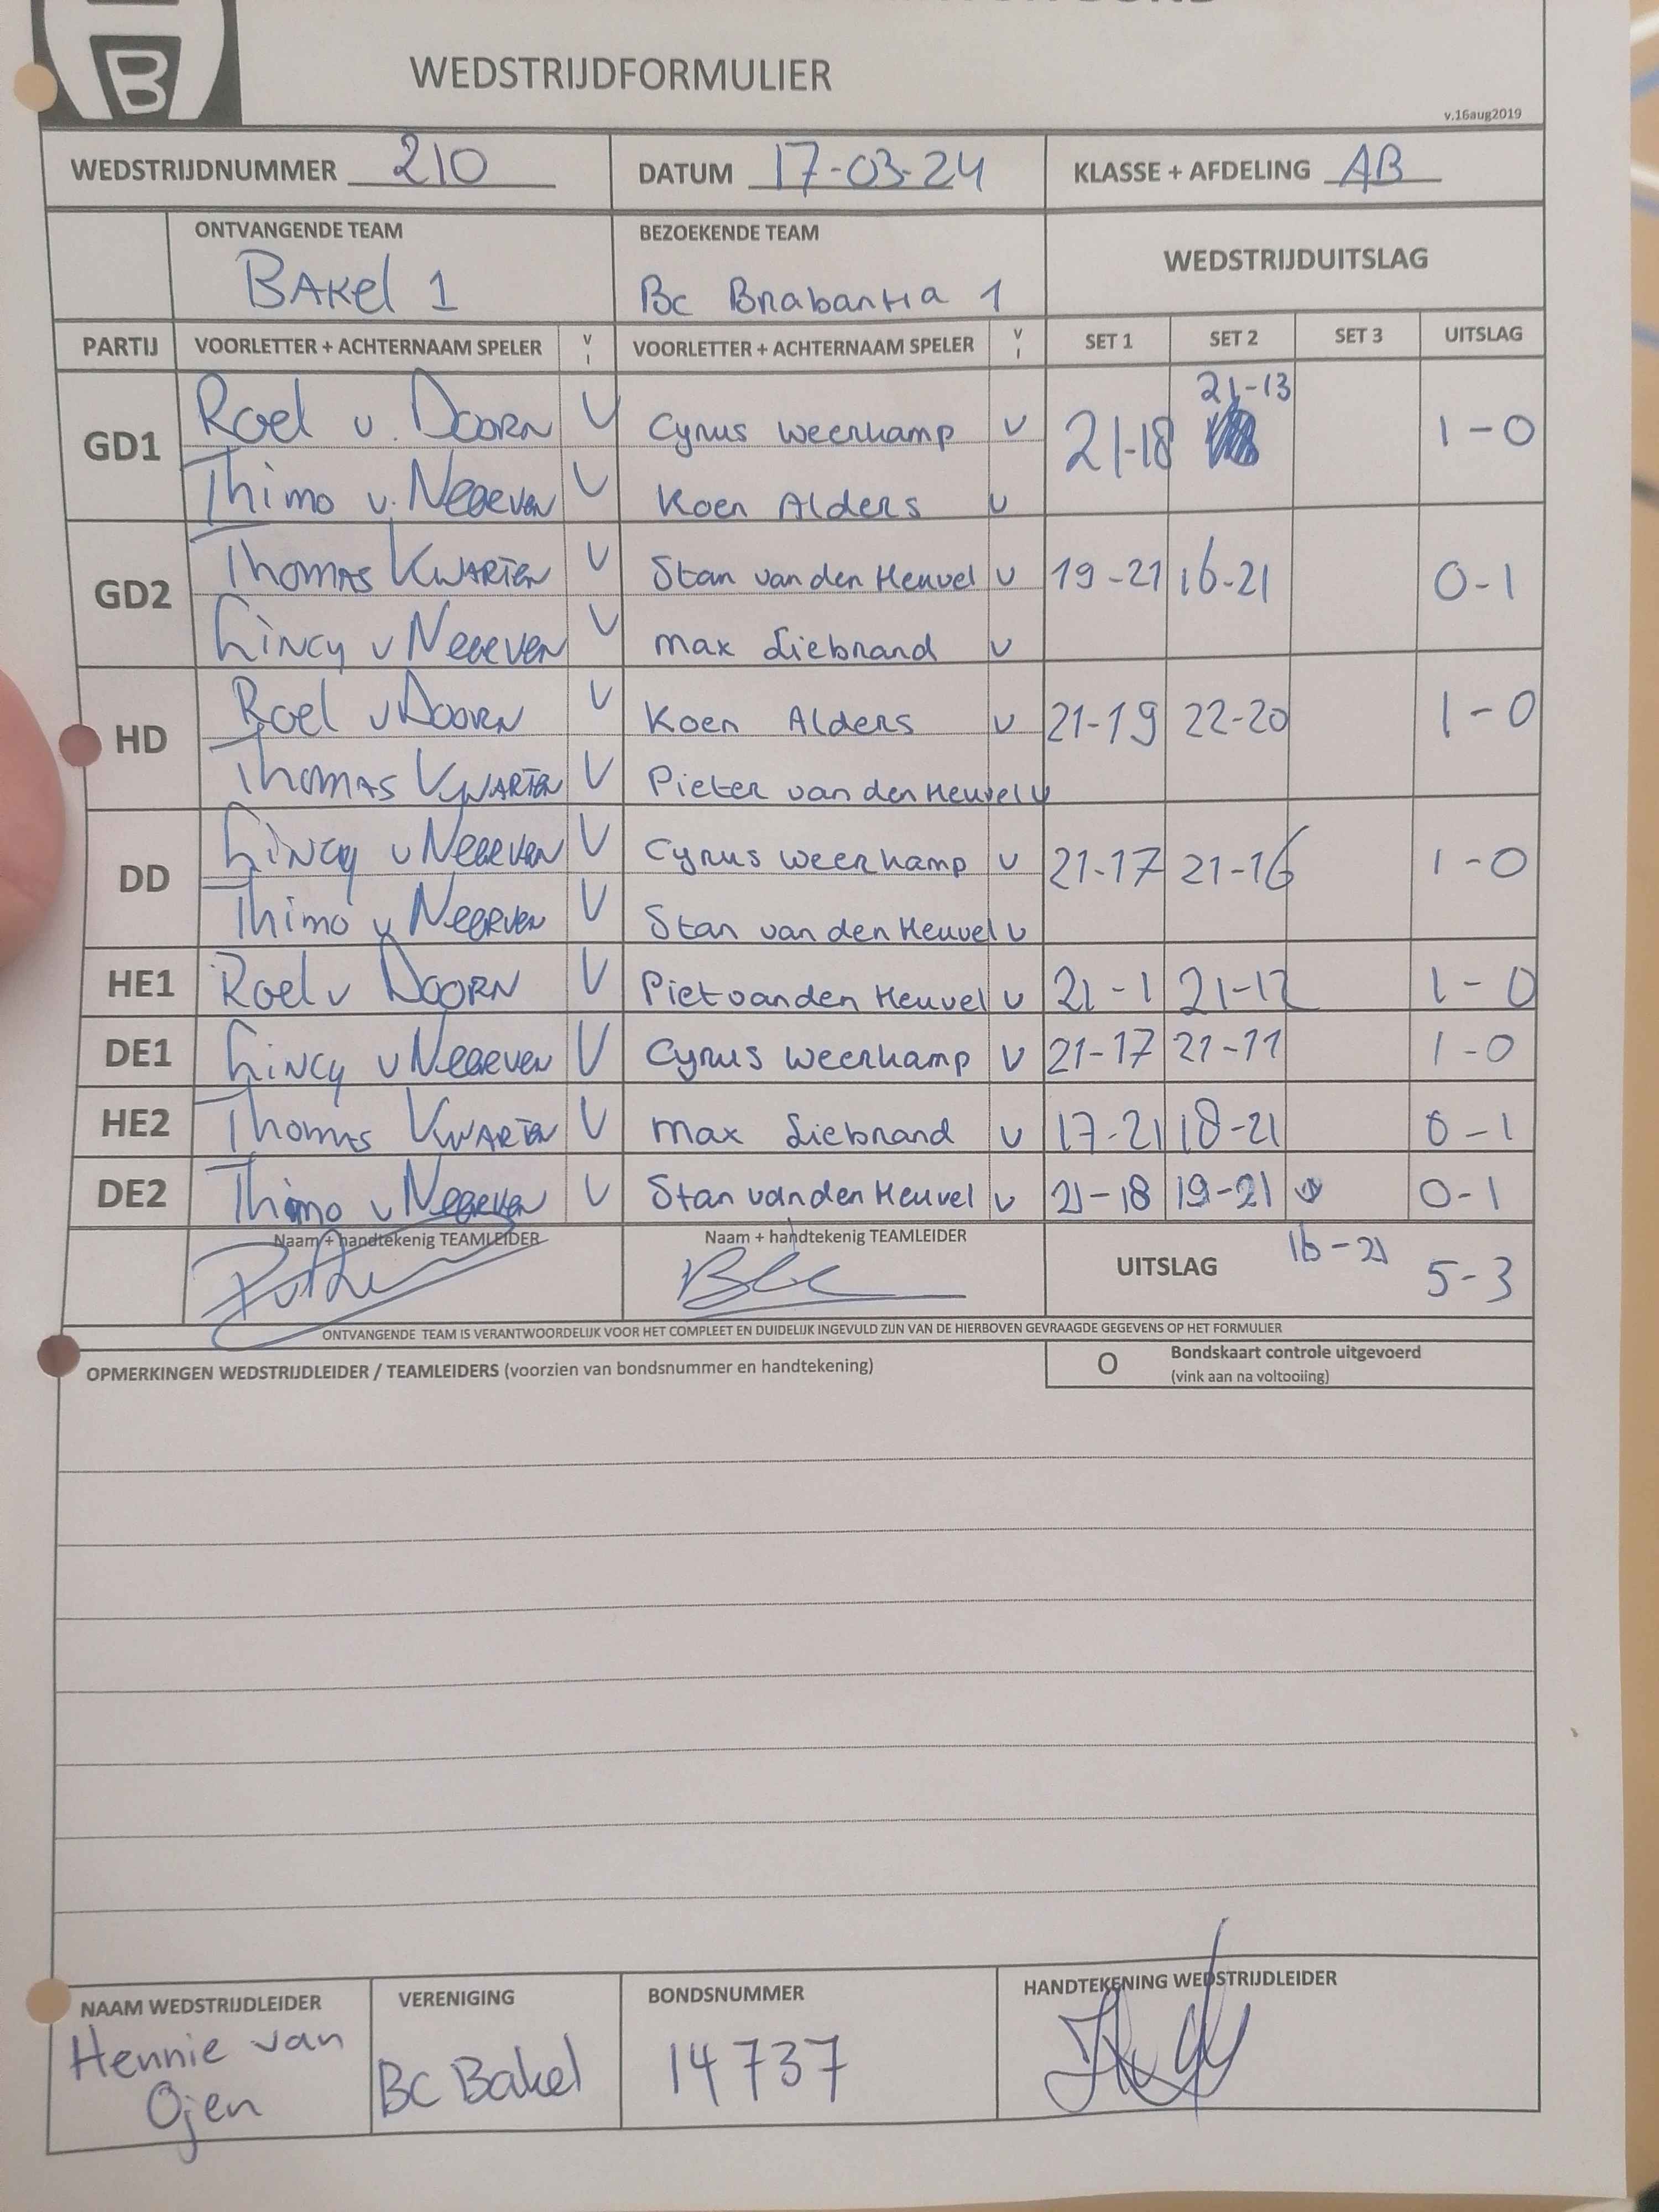 B
WEDSTRIJDFORMULIER
v.16aug2019
WEDSTRIJDNUMMER 210 DATUM 17-03-24 KLASSE + AFDELING AB
ONTVANGENDE TEAM BEZOEKENDE TEAM WEDSTRIJDUITSLAG
BAKel 1 Bc Brabantia 1
PARTIJ VOORLETTER + ACHTERNAAM SPELER V I VOORLETTER + ACHTERNAAM SPELER V I SET 1 SET 2 SET 3 UITSLAG
GD1 Roel v. Doorn V Cyrus Weerkamp v 21-18 21-13 1-0
Thimo v. Neerven V Koen Alders v
GD2 Thomas Kwarten V Stan van den Heuvel v 19-21 16-21 0-1
Lincy v Neerven V Max Liebrand v
HD Roel v Doorn V Koen Alders v 21-19 22-20 1-0
Thomas Kwarten V Pieter van den Heuvel v
DD Lincy v Neerven V Cyrus Weerkamp v 21-17 21-16 1-0
Thimo v Neerven V Stan van den Heuvel v
HE1 Roel v Doorn V Piet van den Heuvel v 21-1 21-12 1-0
DE1 Lincy v Neerven V Cyrus Weerkamp v 21-17 21-11 1-0
HE2 Thomas Kwarten V Max Liebrand v 17-21 18-21 0-1
DE2 Thimo v Neerven V Stan van den Heuvel v 21-18 19-21 0-1
Naam + handtekenig TEAMLEIDER Naam + handtekenig TEAMLEIDER UITSLAG 16-21 5-3
ONTVANGENDE TEAM IS VERANTWOORDELIJK VOOR HET COMPLEET EN DUIDELIJK INGEVULD ZIJN VAN DE HIERBOVEN GEVRAAGDE GEGEVENS OP HET FORMULIER
OPMERKINGEN WEDSTRIJDLEIDER / TEAMLEIDERS (voorzien van bondsnummer en handtekening) O Bondskaart controle uitgevoerd
(vink aan na voltooiing)
NAAM WEDSTRIJDLEIDER VERENIGING BONDSNUMMER HANDTEKENING WEDSTRIJDLEIDER
Hennie van
Ojen BC Bakel 14737